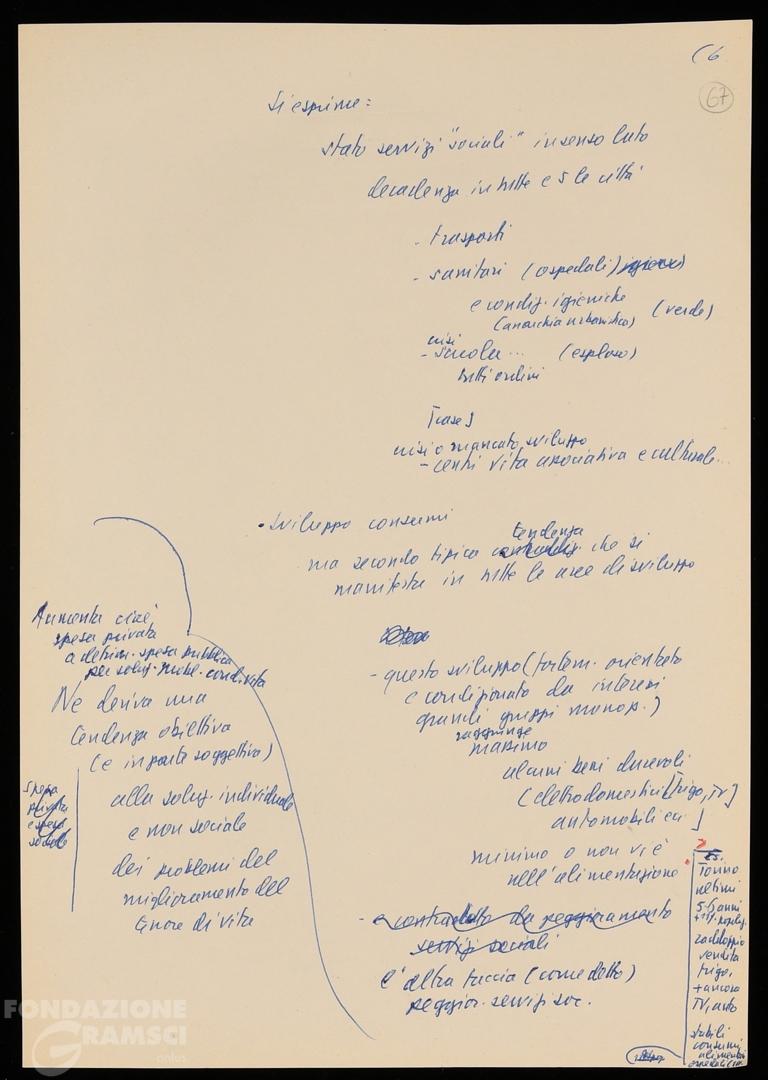 (6
67
si esprime:
stato servizi "sociali" in senso lato
decadenza in tutte e 5 le città
- trasporti
- sanitari (ospedali) igiene)
e condiz. igieniche
(anarchia urbanistica) (verde)
crisi
- scuola... (esploso)
tutti ordini
[case]
crisi o mancato sviluppo
- centri vita associativa e culturale...
• sviluppo consumi
tendenza
ma secondo tipica contraddiz. che si
manifesta in tutte le aree di sviluppo
- questo sviluppo (fortem. orientato
e condizionato da interessi
grandi gruppi monop.)
raggiunge
massimo
alcuni beni durevoli
(elettrodomestici [frigo, TV]
automobili ecc]
minimo o non vi è
nell'alimentazione
- e contraddetto da peggioramento
servizi sociali
è l'altra faccia (come detto)
peggior. servizi soc.
Aumenta cioè
spesa privata
a detrim. spesa pubblica
per soluz. probl. cond. vita
Ne deriva una
tendenza obiettiva
(e in parte soggettiva)
alla soluz. individuale
e non sociale
dei problemi del
miglioramento del
tenore di vita
spesa
privata
e spesa
sociale
?
es.
Torino
ultimi
5-6 anni
raddoppio
vendita
frigo,
+ ancora
TV, auto
stabili
consumi
alimentari
FONDAZIONE
GRAMSCI
onlus